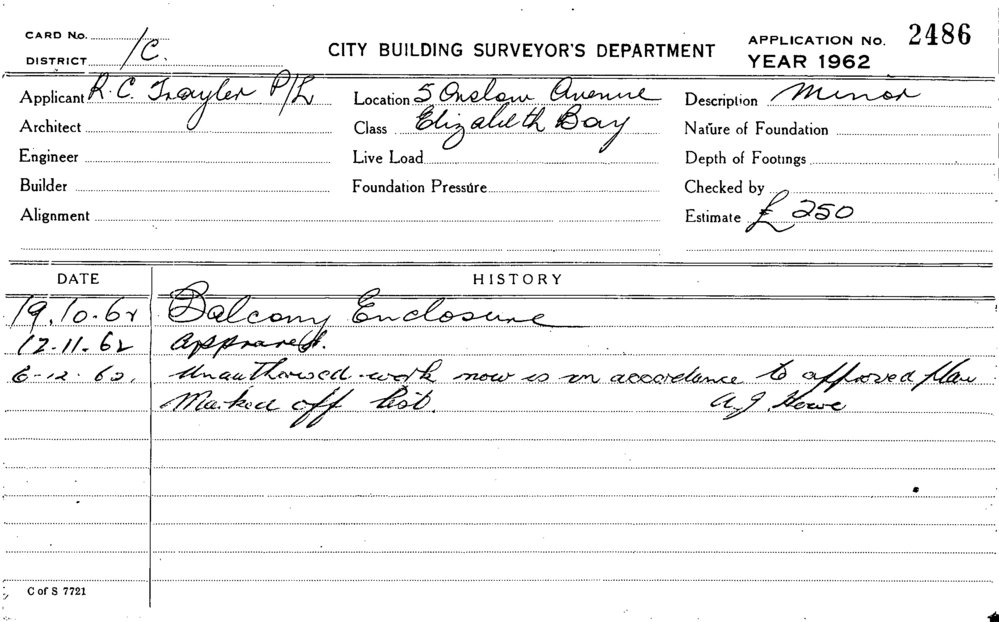 CARD No.
DISTRICT /C.
CITY BUILDING SURVEYOR'S DEPARTMENT
APPLICATION No. 2486
YEAR 1962
Applicant R. C. Trayler P/L
Location 5 Onslow Avenue
Description Minor
Architect
Class Elizabeth Bay
Nature of Foundation
Engineer
Live Load
Depth of Footings
Builder
Foundation Pressure
Checked by
Alignment
Estimate £ 250
DATE HISTORY
19.10.62 Balcony Enclosure
12.11.62 Approved.
6-12.62. Unauthorised work now is in accordance to approved plan
Marked off list. A J Howe
C of S 7721